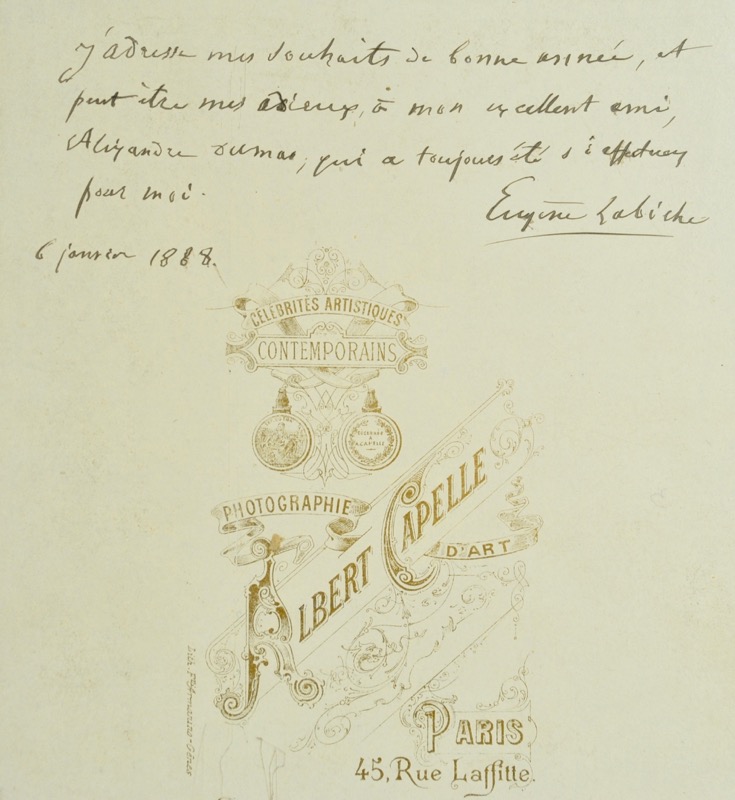 j'adresse mes souhaits de bonne année, et
peut être mes adieux, à mon excellent ami,
Alexandre Dumas, qui a toujours été si affectueux
pour moi.
Eugène Labiche
6 janvier 1888.
CÉLÉBRITÉS ARTISTIQUES
CONTEMPORAINS
PHOTOGRAPHIE
D'ART
ALBERT CAPELLE
PARIS
45, Rue Laffitte.